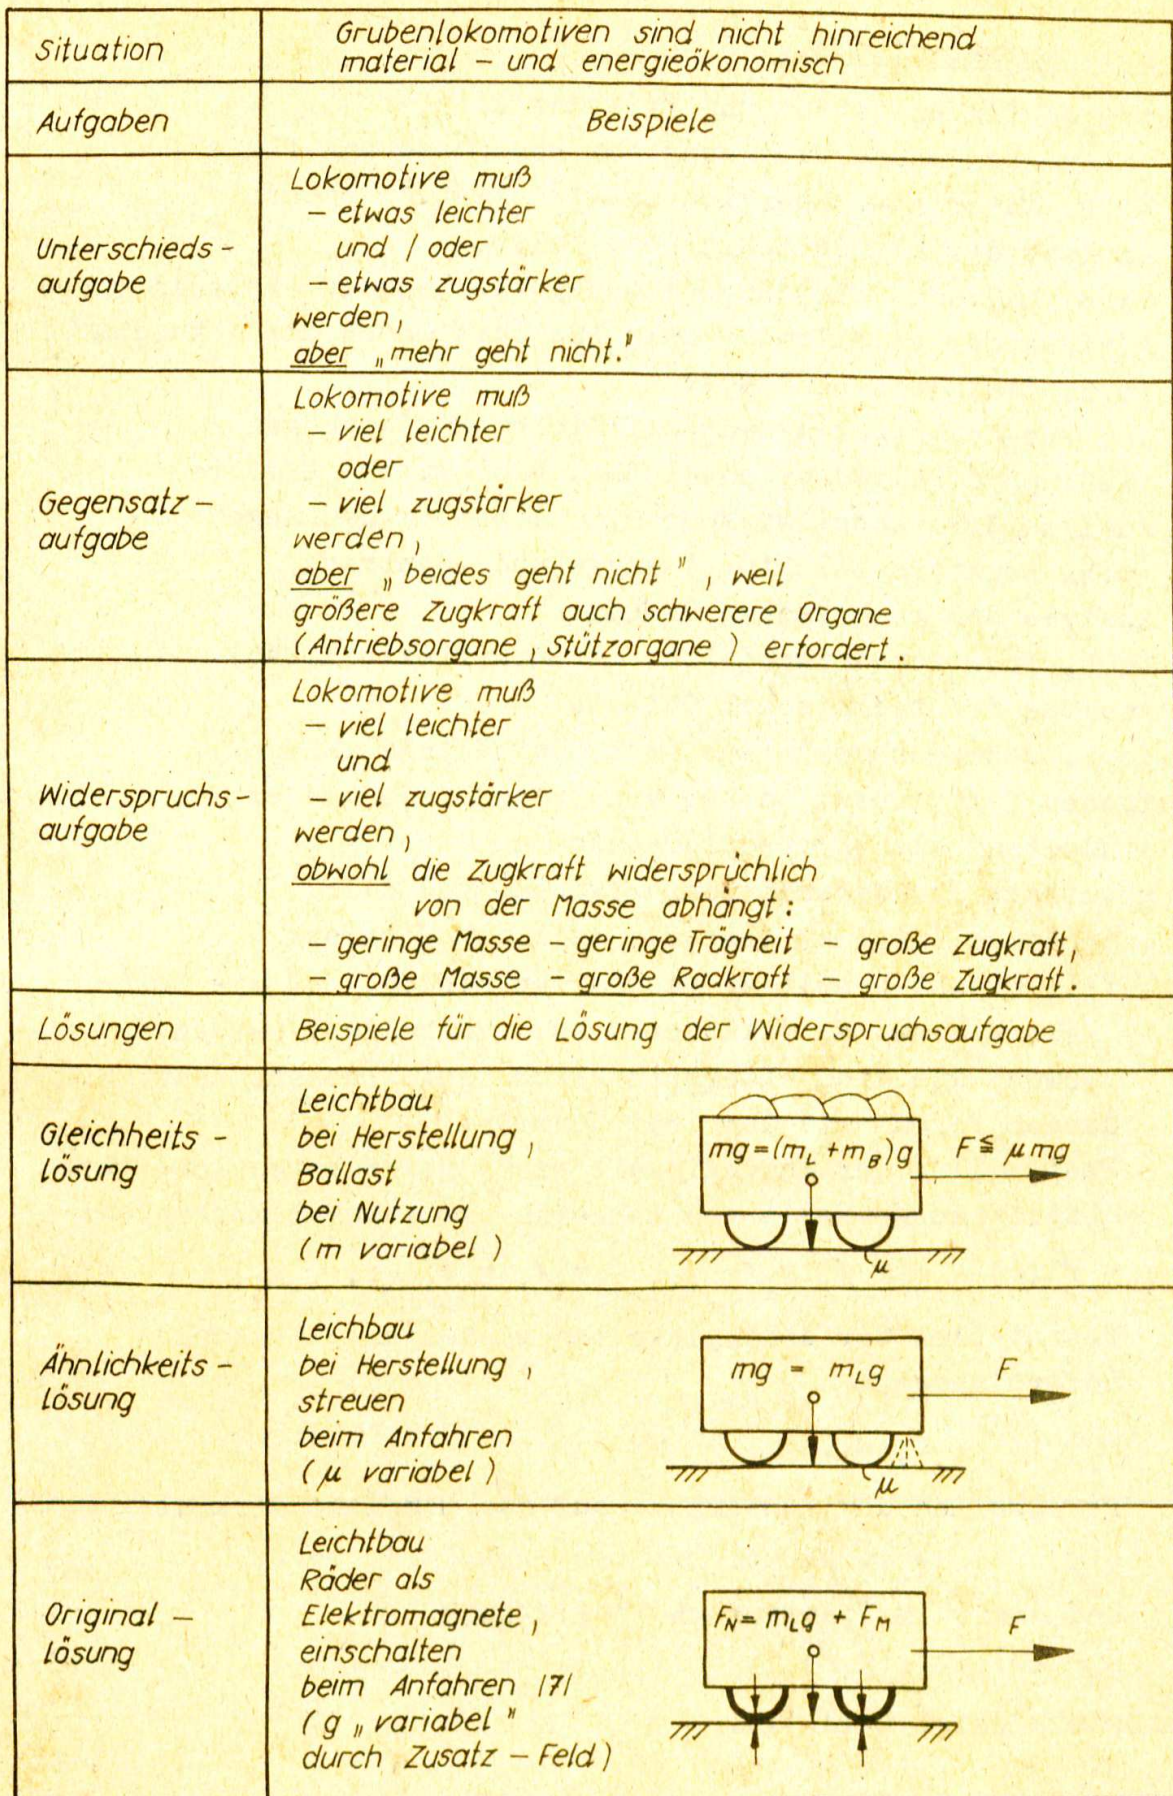 Situation
Grubenlokomotiven sind nicht hinreichend
material - und energieökonomisch
Aufgaben
Beispiele
Unterschieds -
aufgabe
Lokomotive muß
- etwas leichter
und / oder
- etwas zugstärker
werden,
aber „mehr geht nicht."
Gegensatz -
aufgabe
Lokomotive muß
- viel leichter
oder
- viel zugstärker
werden,
aber „beides geht nicht", weil
größere Zugkraft auch schwerere Organe
(Antriebsorgane, Stützorgane) erfordert.
Widerspruchs -
aufgabe
Lokomotive muß
- viel leichter
und
- viel zugstärker
werden,
obwohl die Zugkraft widersprüchlich
von der Masse abhängt:
- geringe Masse - geringe Trägheit - große Zugkraft,
- große Masse - große Radkraft - große Zugkraft.
Lösungen
Beispiele für die Lösung der Widerspruchsaufgabe
Gleichheits -
lösung
Leichtbau
bei Herstellung,
Ballast
bei Nutzung
(m variabel)
mg=(m_L+m_B)g
F ≦ μmg
μ
Ähnlichkeits -
lösung
Leichbau
bei Herstellung,
streuen
beim Anfahren
(μ variabel)
mg = m_Lg
F
μ
Original -
lösung
Leichtbau
Räder als
Elektromagnete,
einschalten
beim Anfahren /7/
(g „variabel"
durch Zusatz - Feld)
F_N = m_Lg + F_M
F